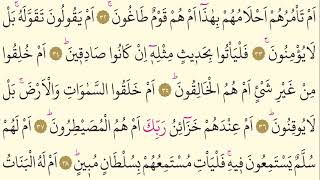 اَمْ تَأْمُرُهُمْ اَحْلَامُهُمْ بِهٰذَٓا اَمْ هُمْ قَوْمٌ طَاغُونَۚ ﴿٣٢﴾ اَمْ يَقُولُونَ تَقَوَّلَهُۚ بَلْ
لَا يُؤْمِنُونَۚ ﴿٣٣﴾ فَلْيَأْتُوا بِحَدِيثٍ مِثْلِهِٓ اِنْ كَانُوا صَادِقِينَۜ ﴿٣٤﴾ اَمْ خُلِقُوا
مِنْ غَيْرِ شَيْءٍ اَمْ هُمُ الْخَالِقُونَۜ ﴿٣٥﴾ اَمْ خَلَقُوا السَّمٰوَاتِ وَالْاَرْضَۚ بَلْ
لَا يُوقِنُونَۜ ﴿٣٦﴾ اَمْ عِنْدَهُمْ خَزَٓائِنُ رَبِّكَ اَمْ هُمُ الْمُصَيْطِرُونَۜ ﴿٣٧﴾ اَمْ لَهُمْ
سُلَّمٌ يَسْتَمِعُونَ فِيهِۚ فَلْيَأْتِ مُسْتَمِعُهُمْ بِسُلْطَانٍ مُبِينٍۜ ﴿٣٨﴾ اَمْ لَهُ الْبَنَاتُ